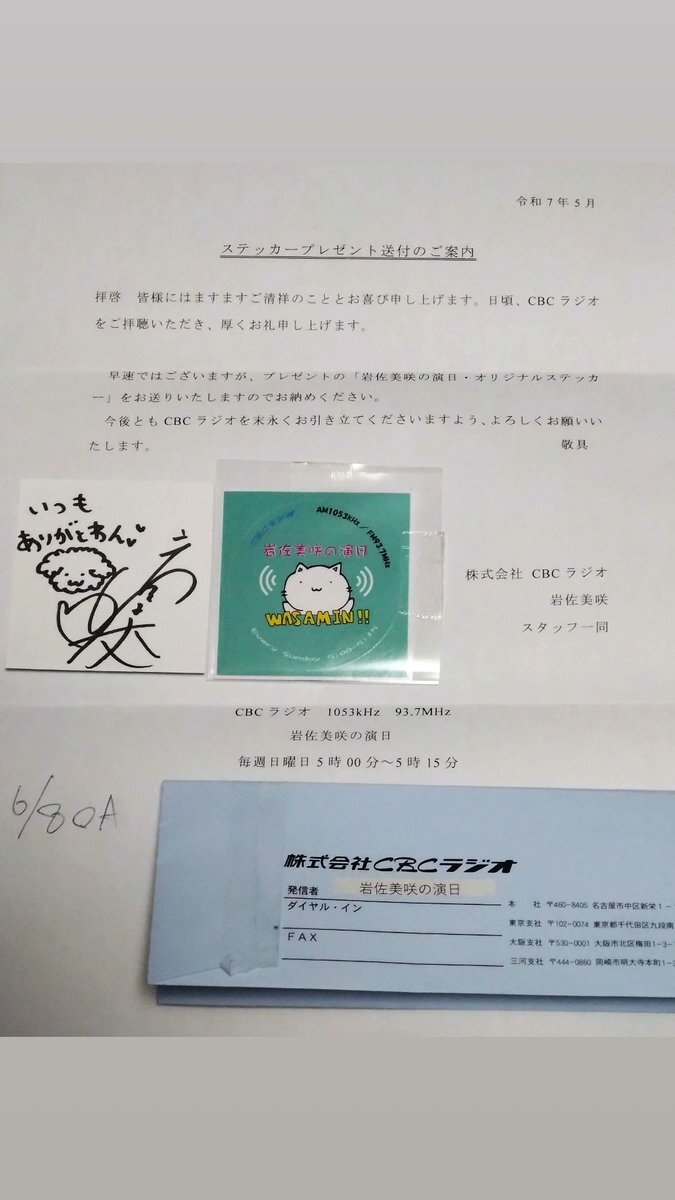 令和7年5月
ステッカープレゼント送付のご案内
拝啓　皆様にはますますご清祥のこととお喜び申し上げます。日頃、CBCラジオ
をご拝聴いただき、厚くお礼申し上げます。
早速ではございますが、プレゼントの「岩佐美咲の演日・オリジナルステッカ
ー」をお送りいたしますのでお納めください。
今後ともCBCラジオを末永くお引き立てくださいますよう、よろしくお願いい
たします。
敬具
いつも
ありがとわん
CBCラジオ
AM1053kHz / FM93.7MHz
岩佐美咲の演日
WASAMIN!!
Every Sunday 5:00-5:15
株式会社 CBCラジオ
岩佐美咲
スタッフ一同
CBCラジオ　1053kHz　93.7MHz
岩佐美咲の演日
毎週日曜日5時00分～5時15分
6/8OA
株式会社CBCラジオ
発信者　岩佐美咲の演日
ダイヤル・イン
FAX
本　社 〒460-8405 名古屋市中区新栄1-
東京支社 〒102-0074 東京都千代田区九段南
大阪支社 〒530-0001 大阪市北区梅田1-3-
三河支社 〒444-0860 岡崎市明大寺本町1-